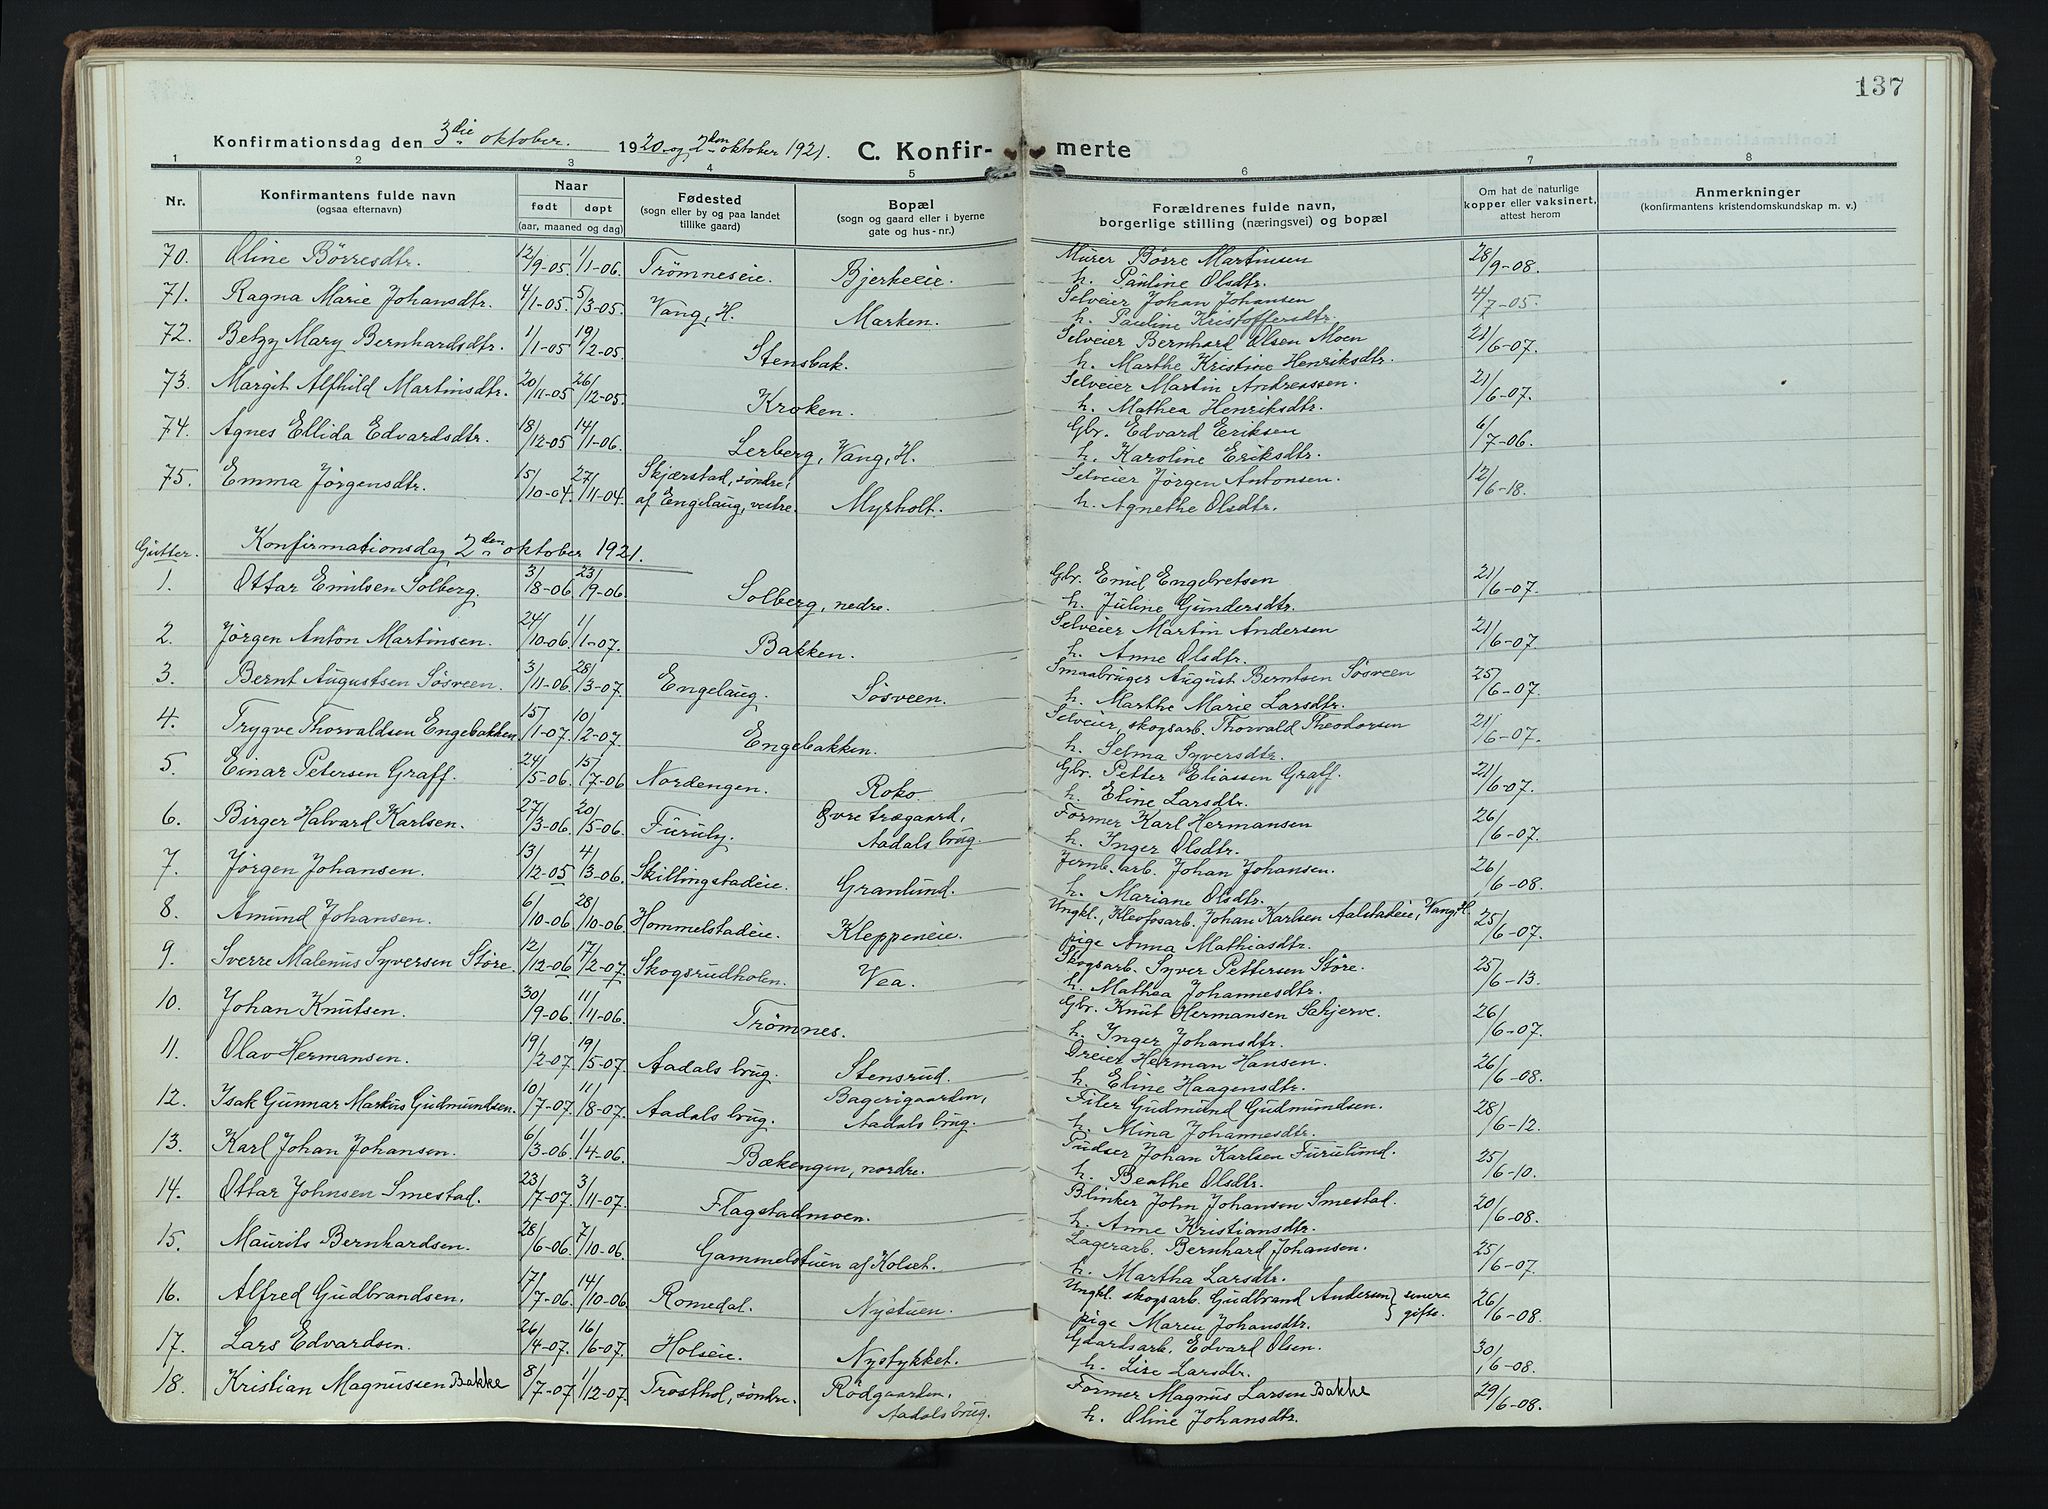 137
Konfirmationsdag den 3die oktober. 1920 og 2den oktober 1921. C. Konfir- merte
1 2 3 4 5 6 7 8
Nr. Konfirmantens fulde navn (ogsaa efternavn) Naar født døpt (aar, maaned og dag) Fødested (sogn eller by og paa landet tillike gaard) Bopæl (sogn og gaard eller i byerne gate og hus-nr.) Forældrenes fulde navn, borgerlige stilling (næringsvei) og bopæl Om hat de naturlige kopper eller vaksinert, attest herom Anmerkninger (konfirmantens kristendomskundskap m. v.)
70. Oline Børresdtr. 12/9-05 1/1-06. Trømneseie. Bjerkeeie. Murer Børre Martinsen 28/9-08.
h. Pauline Olsdtr.
71. Ragna Marie Johansdtr. 4/1-05 5/3-05 Vang, H. Marken. Selveier Johan Johansen 4/7-05.
h. Pauline Kristoffersdtr.
72. Betzy Mary Bernhardsdtr. 1/1-05 19/2-05. Stensbak. Selveier Bernhard Olsen Moen 21/6-07.
h. Marthe Kristine Henriksdtr.
73. Margit Alfhild Martinsdtr. 20/11-05 26/12-05. Kroken. Selveier Martin Andreassen. 21/6-07.
h. Mathea Henriksdtr.
74. Agnes Ellida Edvardsdtr. 18/12-05 14/1-06. Lerberg, Vang, H. Gbr. Edvard Eriksen 6/7-06.
h. Karoline Eriksdtr.
75. Emma Jørgensdtr. 15/10-04. 27/11-04. Skjærstad, søndre, af Engelaug, vestre. Myrholt. Selveier Jørgen Antonsen. 12/6-18.
h. Agnethe Olsdtr.
Gutter. Konfirmationsdag 2den oktober 1921.
1. Ottar Emilsen Solberg. 3/8-06 23/9-06. Solberg, nedre. Gbr. Emil Engebretsen 21/6-07.
h. Juline Gundersdtr.
2. Jørgen Anton Martinsen. 24/10-06. 1/1-07. Bakken. Selveier Martin Andersen 21/6-07.
h. Anne Olsdtr.
3. Bernt Augustsen Søsveen. 3/11-06. 28/3-07. Engelaug. Søsveen. Smaabruger August Berntsen Søsveen 25/6-07.
h. Marthe Marie Larsdtr.
4. Trygve Thorvaldsen Engebakken. 15/1-07. 10/2-07. Engebakken. Selveier, skogsarb. Thorvald Theodorsen 21/6-07.
h. Selma Syversdtr.
5. Einar Petersen Graff. 24/5-06. 15/7-06 Nordengen. Roko. Gbr. Petter Eliassen Graff. 21/6-07.
h. Eline Larsdtr.
6. Birger Halvard Karlsen. 27/3-06. 20/5-06. Furuly. Øvre trægaard, Aadals brug. Former Karl Hermansen 26/6-07.
h. Inger Olsdtr.
7. Jørgen Johansen. 13/12-05 4/3-06. Skillingstadeie. Granlund. Jernb. arb. Johan Johansen. 26/6-08.
h. Mariane Olsdtr.
8. Amund Johansen. 6/10-06 28/10-06. Hommelstadeie. Kleppeneie. Ungkl., Klevfosarb. Johan Karlsen Aalstadeie, Vang, H. 25/6-07.
pige Anna Mathiasdtr.
9. Sverre Malenus Syversen Støre. 12/12-06 17/2-07. Skogsrudholen. Vea. Skogsarb. Syver Pettersen Støre. 25/6-13.
h. Mathea Johannesdtr.
10. Johan Knutsen. 30/9-06. 11/11-06. Trømnes. Gbr. Knut Hermansen Schjerve. 26/6-07.
h. Inger Johansdtr.
11. Olav Hermansen. 19/2-07. 19/5-07 Aadals brug. Stensrud. Dreier Herman Hansen. 26/6-08.
h. Eline Haagensdtr.
12. Isak Gunnar Markus Gudmundsen. 10/7-07. 11/8-07. Aadals brug. Bagerigaarden, Aadals brug. Filer Gudmund Gudmundsen. 28/6-12.
h. Mina Johannesdtr.
13. Karl Johan Johansen. 6/3-06. 1/4-06. Bækengen, nordre. Pudser Johan Karlsen Furulund. 25/6-10.
h. Beathe Olsdtr.
14. Ottar Johnsen Smestad. 23/7-07. 3/11-07. Flagstadmoen. Blinker John Johansen Smestad. 20/6-08.
h. Anne Kristiansdtr.
15. Maurits Bernhardsen. 28/6-06. 7/10-06. Gammelstuen af Kolset. Lagerarb. Bernhard Johansen. 25/6-07.
h. Martha Larsdtr.
16. Alfred Gudbrandsen. 17/7-06. 14/10-06. Romedal. Nystuen. Ungkl. skogsarb. Gudbrand Andersen } senere gifte. 26/6-08.
pige Maren Johansdtr.
17. Lars Edvardsen. 26/4-07. 16/6-07. Holseie. Nystykket. Gaardsarb. Edvard Olsen. 30/6-08.
h. Lise Larsdtr.
18. Kristian Magnussen Bakke 8/7-07. 1/12-07. Trosthol, søndre. Rödgaarden, Aadals brug. Former Magnus Larsen Bakke 29/6-08.
h. Oline Johansdtr.